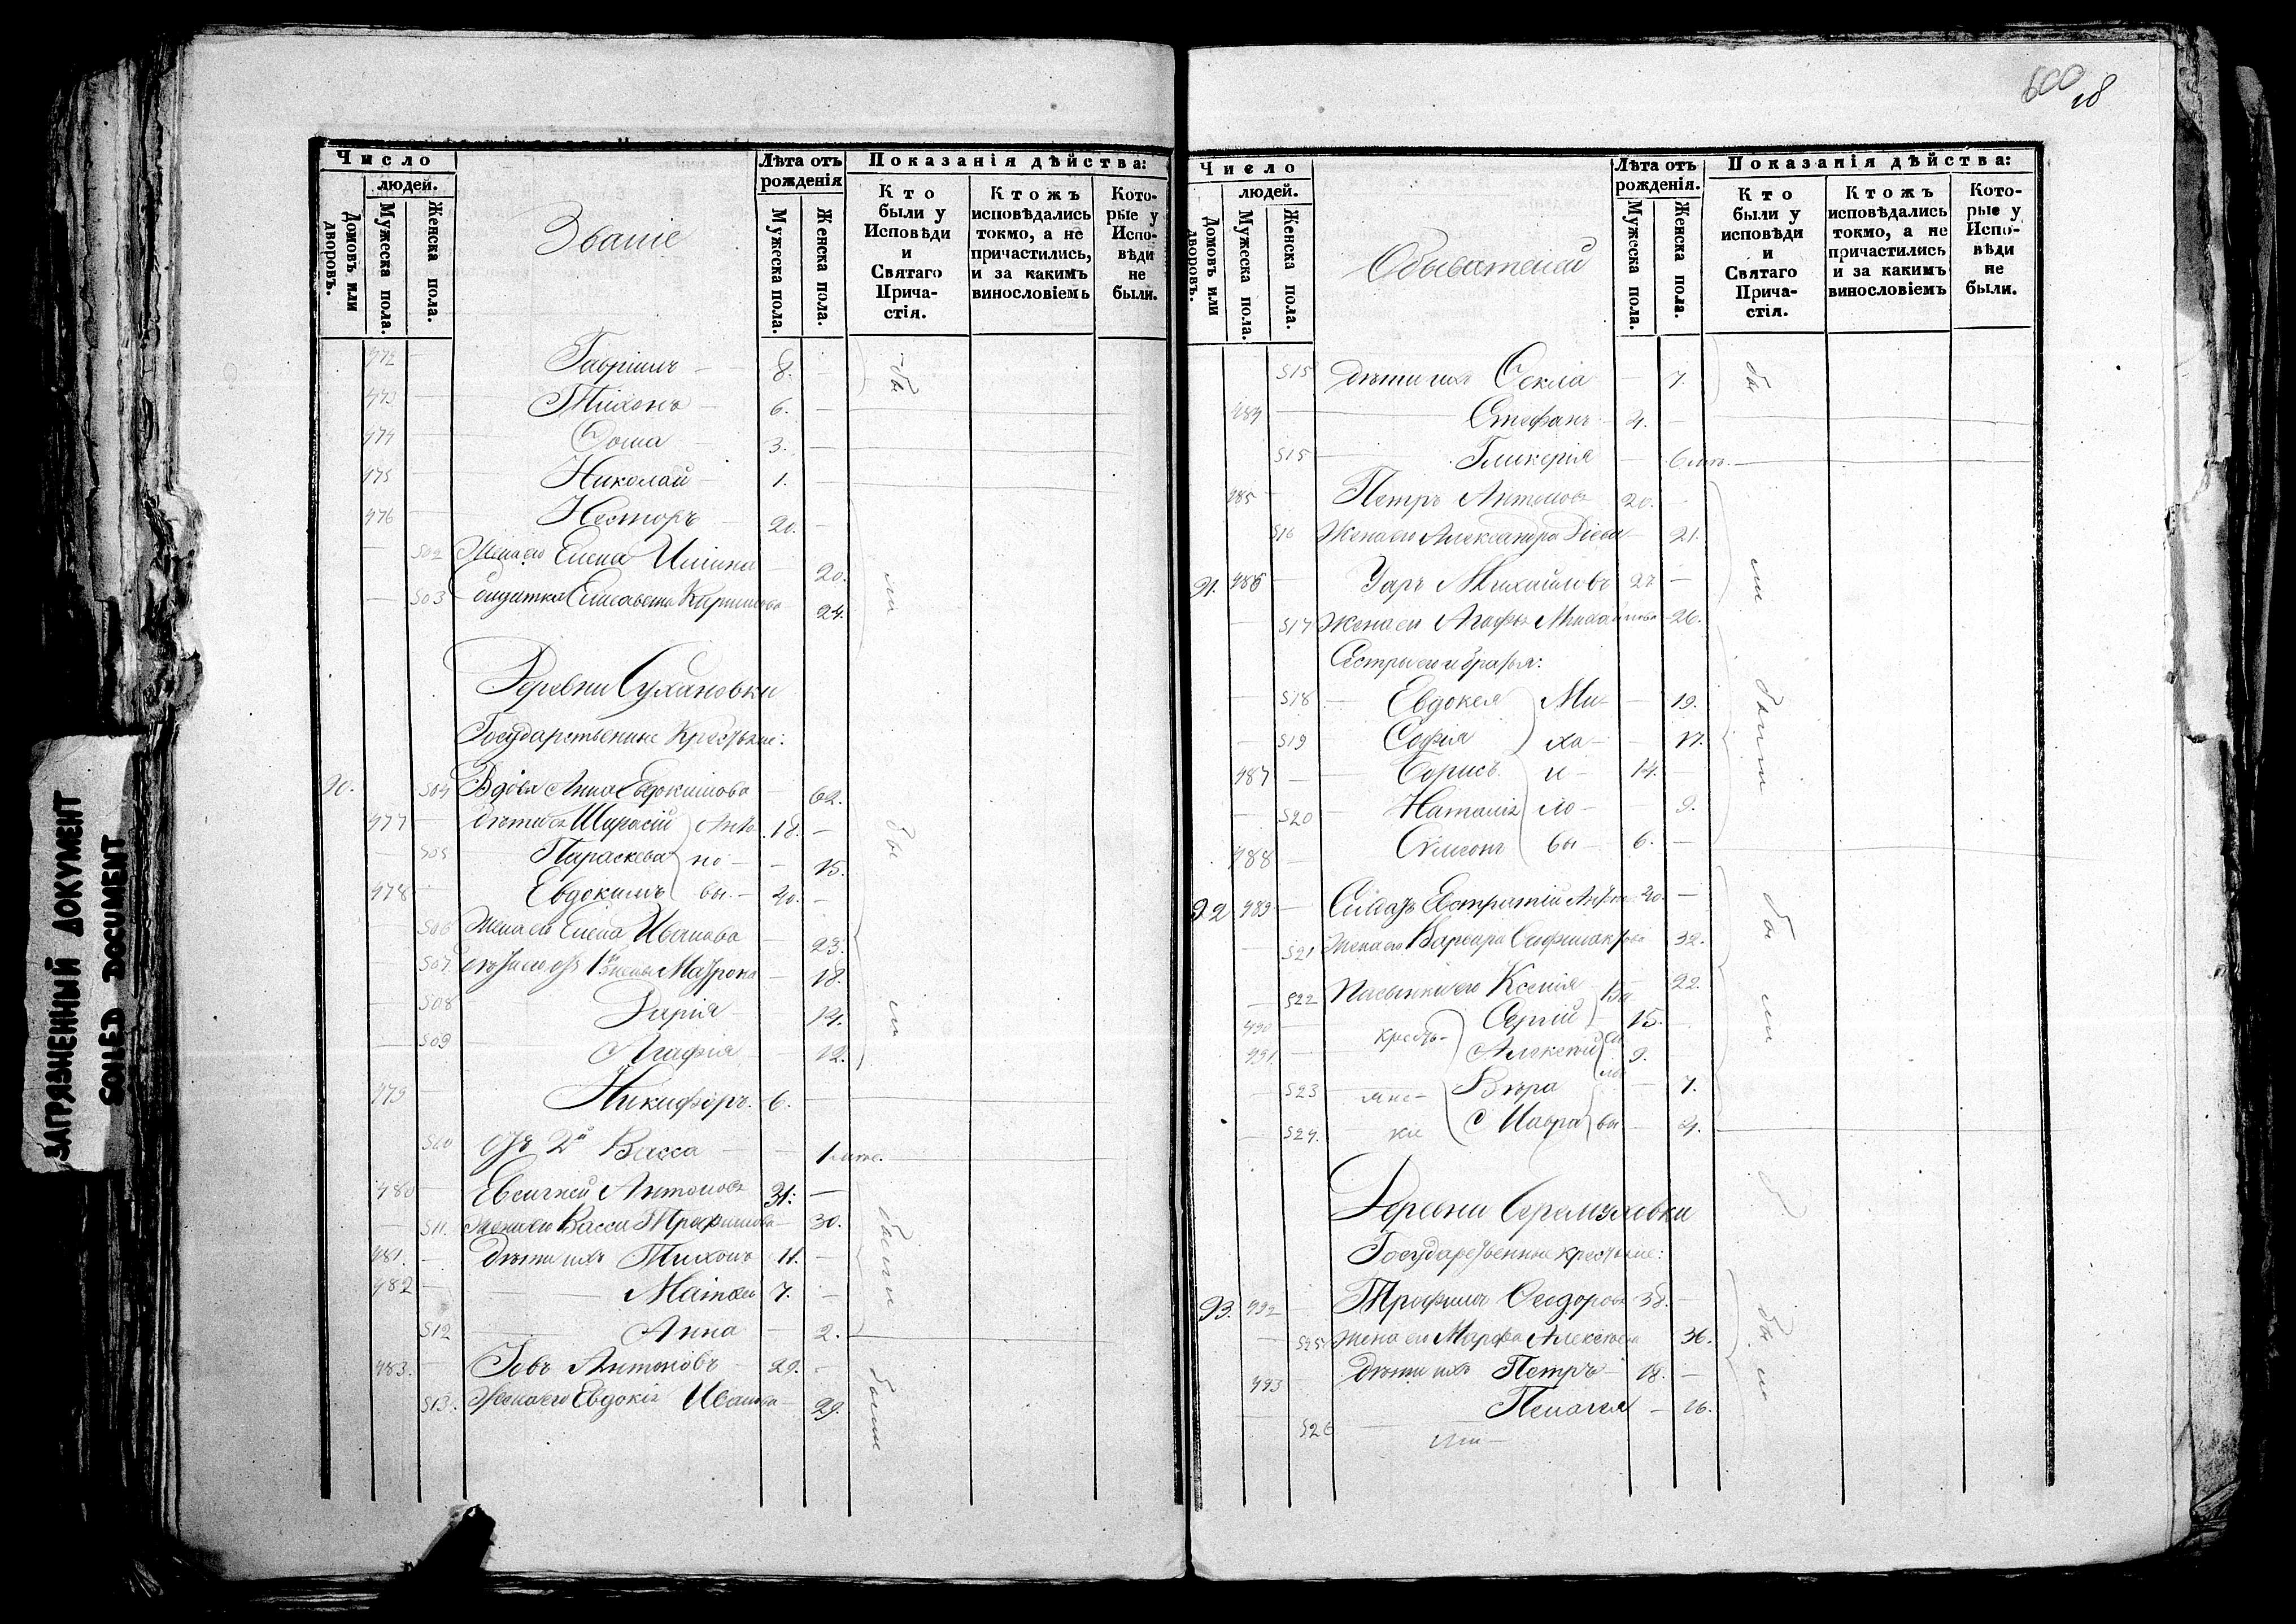 600 18
ЗАГРЯЗНЕННЫЙ ДОКУМЕНТ
SOILED DOCUMENT
Число
людей.
Домовъ или дворовъ.
Мужеска пола.
Женска пола.
Званіе
Лѣта отъ рожденія
Мужеска пола.
Женска пола.
Показанія дѣйства:
Кто были у Исповѣди и Святаго Прича-стія.
Ктожъ исповѣдались токмо, а не причастились, и за какимъ винословіемъ
Кото-рые у Испо-вѣди не были.
472 Гавріилъ 8. бы
473 Тихонъ 6.
474 Ѳома 3.
475 Николай 1.
476 Несторъ 20.
502 Жена его Елена Ильина 20. ли
503 Солдатка Елисавета 24.
Деревни Сухановки
Государственные Крестьяне:
90. 504 Вдова Анна Евдокимова 62.
477 дѣти ея Анто 18. бы
505 Параскева но 15.
478 Евдокимъ вы 20.
506 Жена его Елена Иванова 23.
507. дѣти его отъ 1й жены Матрона 18.
508 Дарія 14. ли
509 Агафія 12.
479 Никифоръ. 6.
510 отъ 2й Васса 1
480 Евсигней Антоновъ 31.
511. Жена его Васса Трофимова 30. были
481. дѣти ихъ Тихонъ 11.
482 Матвей 7.
512 Анна 2.
483. Іовъ Антоновъ 29. были
513. Жена его Евдокія Иванова 29.
Число
людей.
Домовъ или дворовъ.
Мужеска пола.
Женска пола.
Обывателей
Лѣта отъ рожденія.
Мужеска пола.
Женска пола.
Показанія дѣйства:
Кто были у исповѣди и Святаго Прича-стія.
Ктожъ исповѣдались токмо, а не причастились и за какимъ винословіемъ
Кото-рые у Испо-вѣди не были.
515 дѣти ихъ Ѳекла 7. бы
484 Стефанъ 4.
515 Гликерія 6
485 Петръ Антоновъ 20.
516 Жена его Александра 21.
91. 486 Уаръ Михайловъ 27 ли
517 Жена его Агафья 26.
Сестры его и братья:
518 Евдокея Ми- 19.
519 Софія ха- 17. были
487 Борисъ и- 14.
520 Наталія ло- 9.
488 Симеонъ вы 6.
92 489 Солдатъ Евстратій 20.
521 Жена его Варвара 32. бы
522 Пасынки его Ксенія 22.
490 кресть- Сергій 15. ли
491. Алексѣй 9.
523 яне- Вѣра 7.
524. кіе Мавра вы 4.
Деревни
Государственные крестьяне:
93. 492 Трофимъ Ѳеодоровъ 38.
525. Жена его Марфа Алексѣева 36. бы
493 дѣти ихъ Петръ 18. ли
526 Пелагея 16.